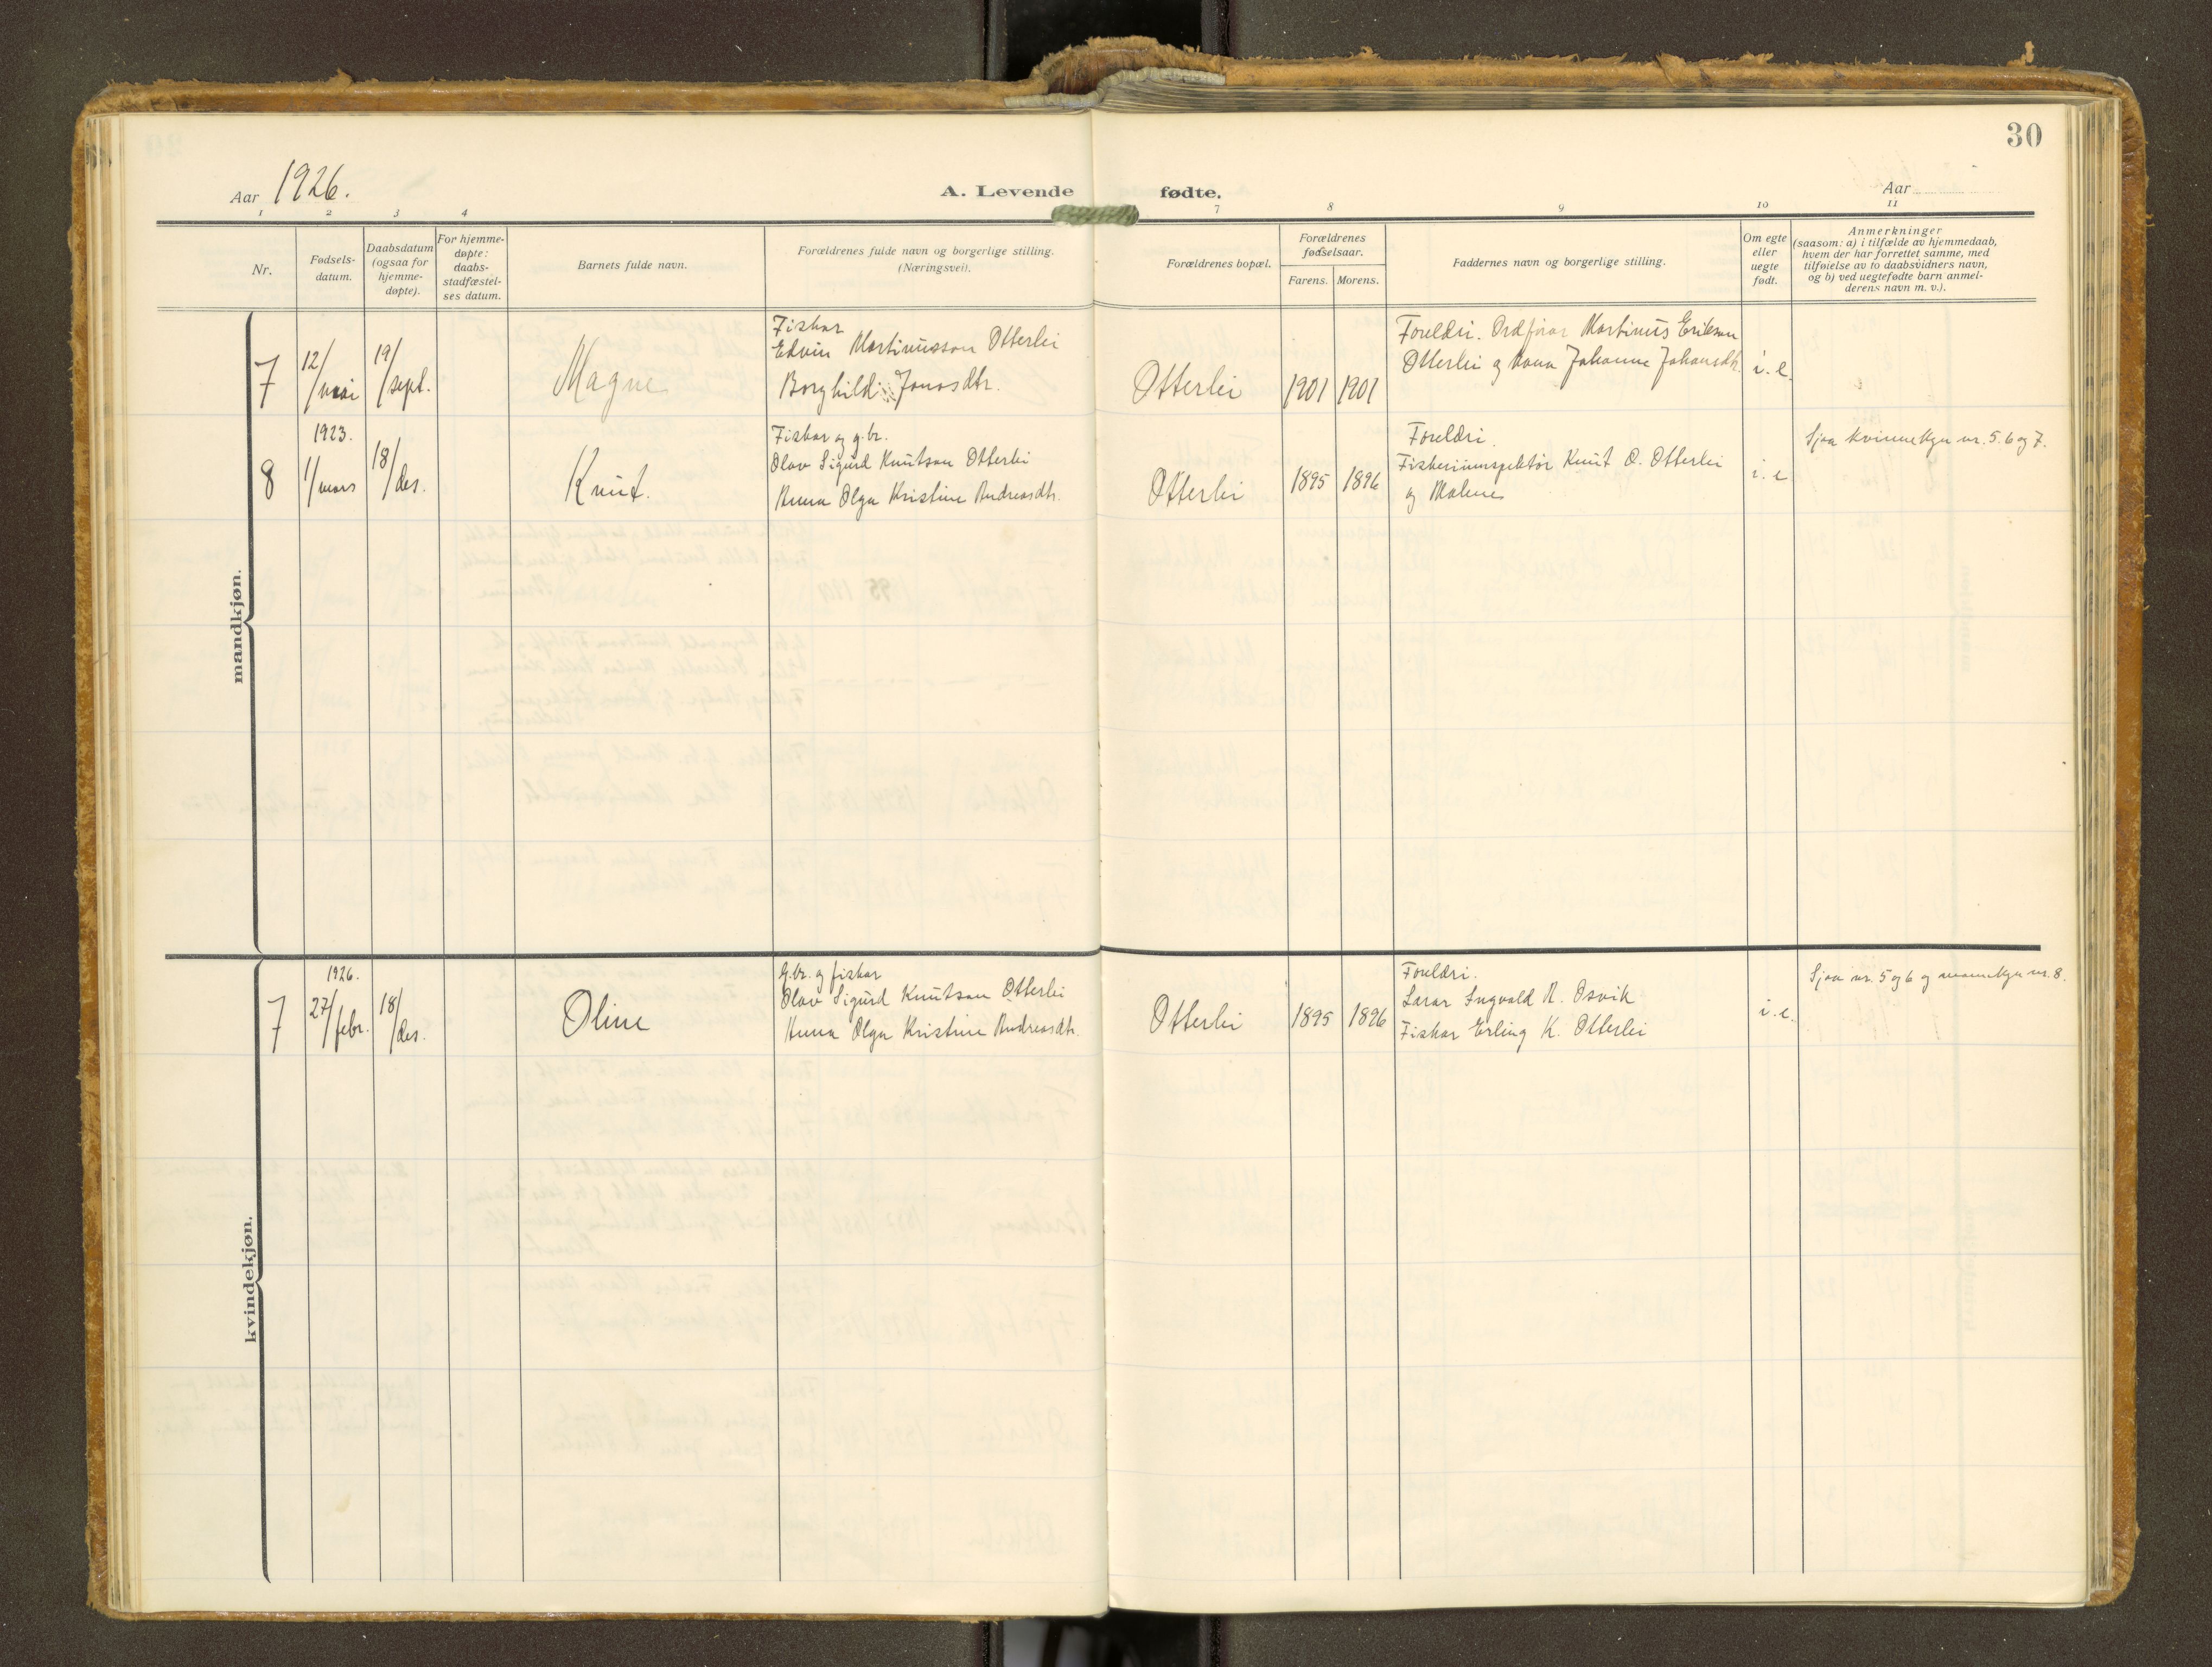 30
Aar 1926.
A. Levende fødte.
Aar
1 2 3 4 7 8 9 10 11
Nr.
Fødsels-
datum.
Daabsdatum
(ogsaa for
hjemme-
døpte).
For hjemme-
døpte:
daabs-
stadfæstel-
ses datum.
Barnets fulde navn.
Forældrenes fulde navn og borgerlige stilling.
(Næringsvei).
Forældrenes bopæl.
Forældrenes
fødselsaar.
Farens. Morens.
Faddernes navn og borgerlige stilling.
Om egte
eller
uegte
født.
Anmerkninger
(saasom: a) i tilfælde av hjemmedaab,
hvem der har forrettet samme, med
tilføielse av to daabsvidners navn,
og b) ved uegtefødte barn anmel-
derens navn m. v.).
mandkjøn.
7
12/mai
19/sept.
Magne
Fiskar
Edvin Martinusson Otterlei
Borghild Jonasdtr.
Otterlei
1901 1901
Foreldri. Ordførar Martinus Erikson
Otterlei og kona Johanne Johansdtr.
i. e.
8
1923.
1/mars
18/des.
Knut.
Fiskar og g.br.
Olav Sigurd Knutson Otterlei
Anna Olga Kristine Andreasdtr.
Otterlei
1895 1896
Foreldri.
Fiskeriinspektör Knut O. Otterlei
og Malene
i. e
Sjaa kvinnekyn nr. 5. 6 og 7.
kvindekjøn.
7
1926.
27/febr.
18/des.
Oline
G.br. og fiskar
Olav Sigurd Knutson Otterlei
Anna Olga Kristine Andreasdtr.
Otterlei
1895 1896
Foreldri.
Lærar Ingvald R. Osvik
Fiskar Erling K. Otterlei
i. e.
Sjaa nr. 5 og 6 og mannekyn nr. 8.